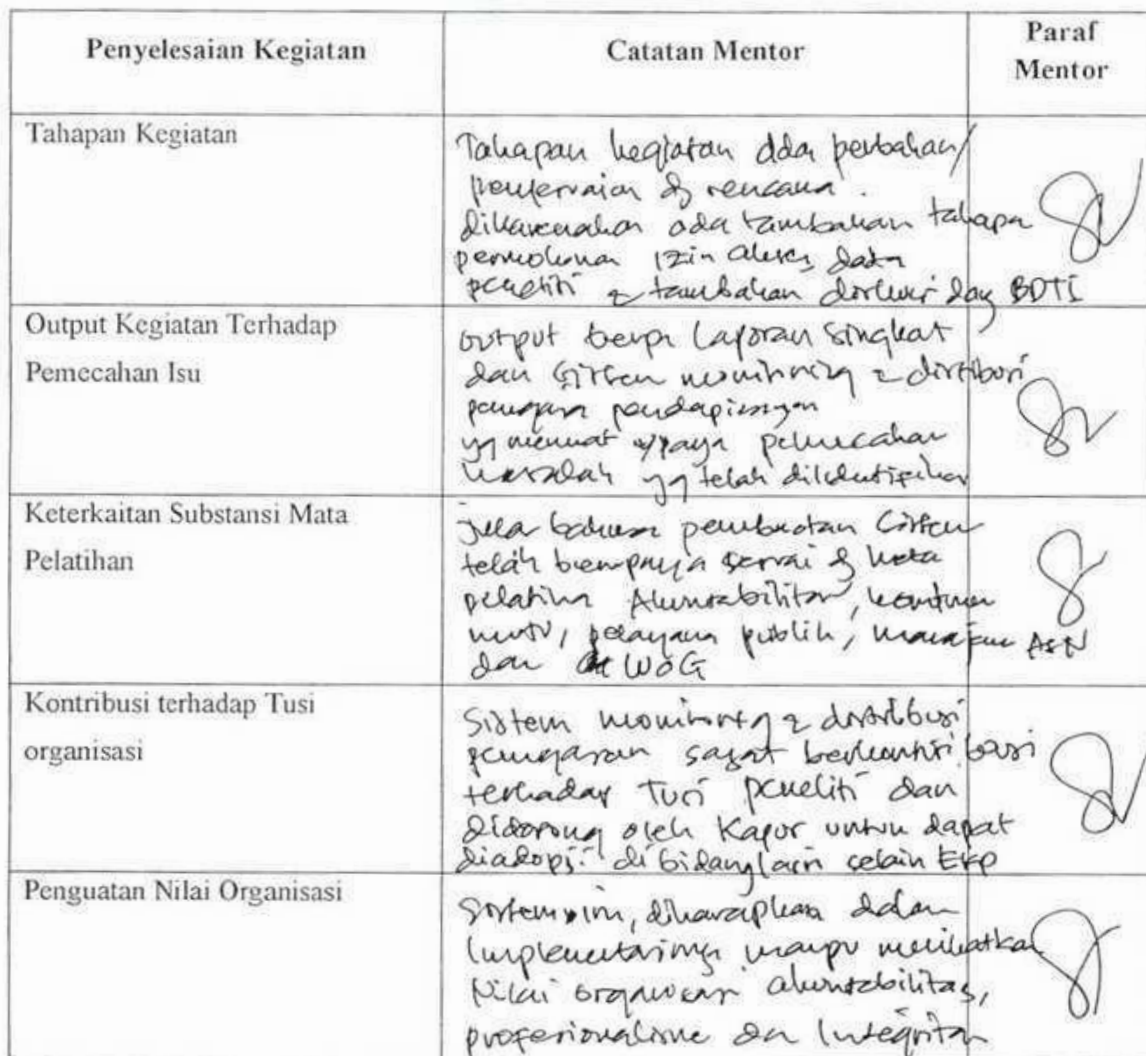 Penyelesaian Kegiatan
Catatan Mentor
Paraf
Mentor
Tahapan Kegiatan
Tahapan kegiatan ada perubahan/
penyesuaian dg rencana.
dikarenakan ada tambahan tahapan
permohonan izin akses data
peneliti & tambahan diskusi dg BDTI
Output Kegiatan Terhadap
Pemecahan Isu
output berupa laporan singkat
dan sistem monitoring & distribusi
penugasan pendampingan
yg memuat upaya pemecahan
masalah yg telah diidentifikasi
Keterkaitan Substansi Mata
Pelatihan
bahwa pembuatan sistem
telah sesuai dg mata
pelatihan Akuntabilitas, komitmen
mutu, pelayanan publik, manajemen ASN
dan WOG
Kontribusi terhadap Tusi
organisasi
Sistem monitoring & distribusi
penugasan sangat berkontribusi
terhadap Tusi peneliti dan
didorong oleh Kapus untuk dapat
diadopsi di bidang lain selain EKP
Penguatan Nilai Organisasi
Sistem ini, diharapkan dalam
Implementasinya mampu
Nilai organisasi akuntabilitas,
profesionalisme dan Integritas